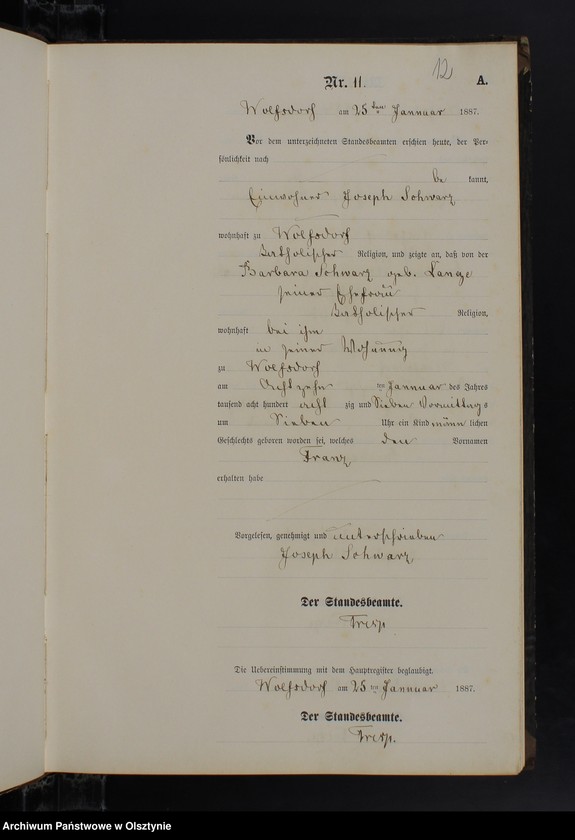 12
Nr. 11. A.
Wolfsdorf am 25 ten Januar 1887.
Vor dem unterzeichneten Standesbeamten erschien heute, der Per-
sönlichkeit nach
be kannt,
Einwohner Joseph Schwarz
wohnhaft zu Wolfsdorf
katholischer Religion, und zeigte an, daß von der
Barbara Schwarz geb. Lange
seiner Ehefrau
katholischer Religion,
wohnhaft bei ihm
in seiner Wohnung
zu Wolfsdorf
am Achtzehn ten Januar des Jahres
tausend acht hundert acht zig und Sieben Vormittags
um Sieben Uhr ein Kind männ lichen
Geschlechts geboren worden sei, welches den Vornamen
Franz
erhalten habe
Vorgelesen, genehmigt und unterschrieben
Joseph Schwarz
Der Standesbeamte.
Die Uebereinstimmung mit dem Hauptregister beglaubigt.
Wolfsdorf am 25 ten Januar 1887.
Der Standesbeamte.
Archiwum Państwowe w Olsztynie